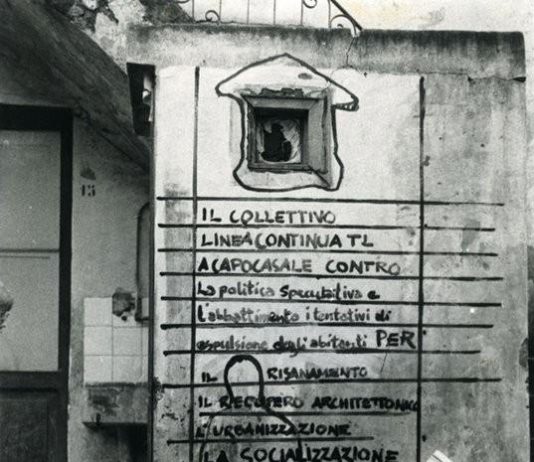 13
IL COLLETTIVO
LINEA CONTINUA TL
A CAPOCASALE CONTRO
La politica speculativa e
l'abbattimento i tentativi di
espulsione degli abitanti PER
IL RISANAMENTO
IL RECUPERO ARCHITETTONICO
L'URBANIZZAZIONE
LA SOCIALIZZAZIONE